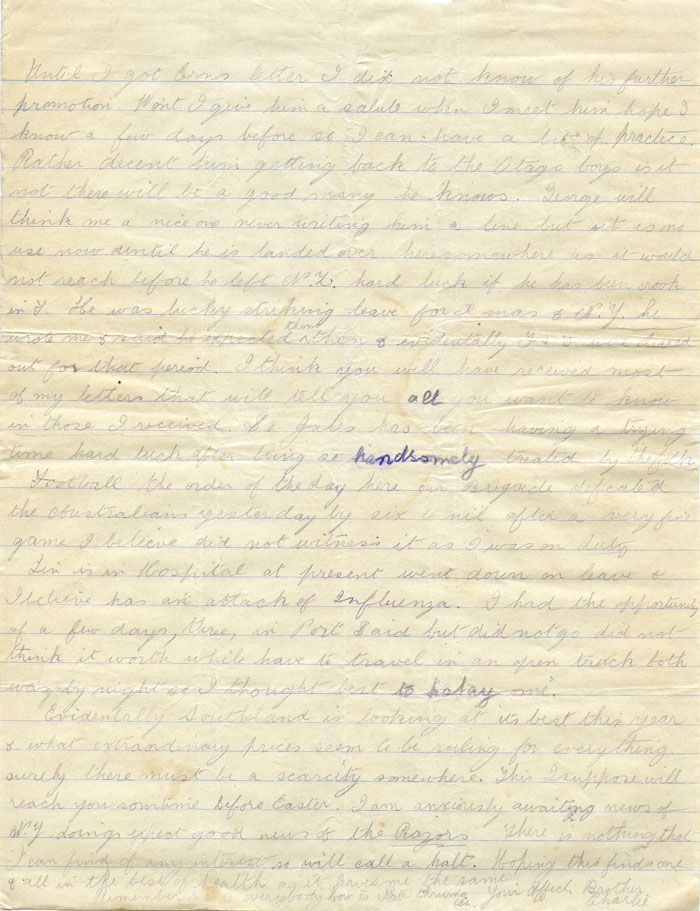 Until I got Erns letter I did not know of his further
promotion. Wont I give him a salute when I meet him hope I
know a few days before so I can have a bit of practice.
Rather decent him getting back to the Otago boys is it
not there will be a good many he knows. George will
think me a nice one never writing him a line but it is no
use now until he is landed over here somewhere as it would
not reach before he left N.Z. hard luck if he has been crook
in I. He was lucky striking leave for X mas & N.Y. he
wrote me & said he expected them then & evidently
out for that period. I think you will have received most
of my letters that will tell you all you want to know
in those I received. has been having a trying
time hard luck after being so handsomely treated by the folk
Football the order of the day here our Brigade defeated
the Australians yesterday by six to nil after a very fine
game I believe did not witness it as I was on duty
Lin is in Hospital at present went down on leave &
I believe has an attack of Influenza. I had the opportunity
of a few days, three, in Port Said but did not go did not
think it worth while have to travel in an open truck both
ways by night so I thought best to stay
Evidently Southland is looking at its best this year
& what extraordinary prices seem to be ruling for everything
surely there must be a scarcity somewhere. This I suppose will
reach you sometime before Easter. I am anxiously awaiting news of
N.Y. doings expect good news of the Razors There is nothing that
I can find of any interest so will call a halt. Hoping this finds one
& all in the best of health as it leaves me the same
Remember me everybody Your Affect. Brother
Charlie